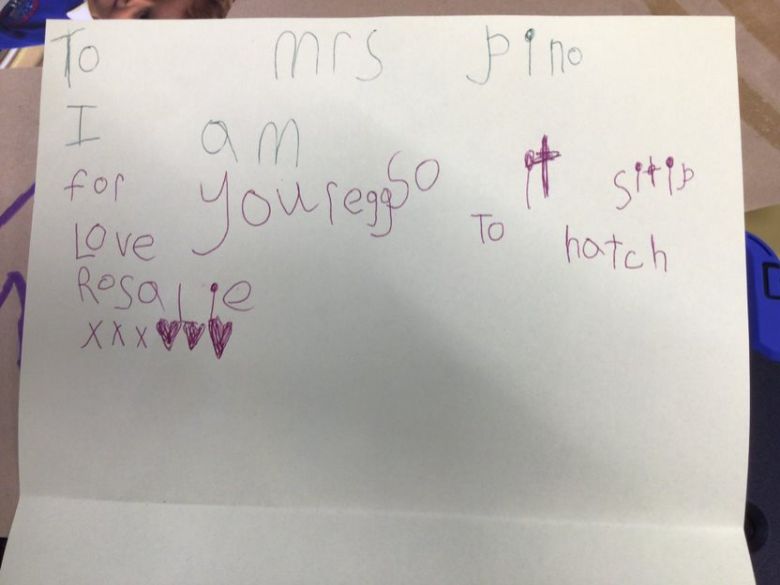 To mrs pino
I am so it sitip
for your egg To hatch
Love
Rosalie
xxx